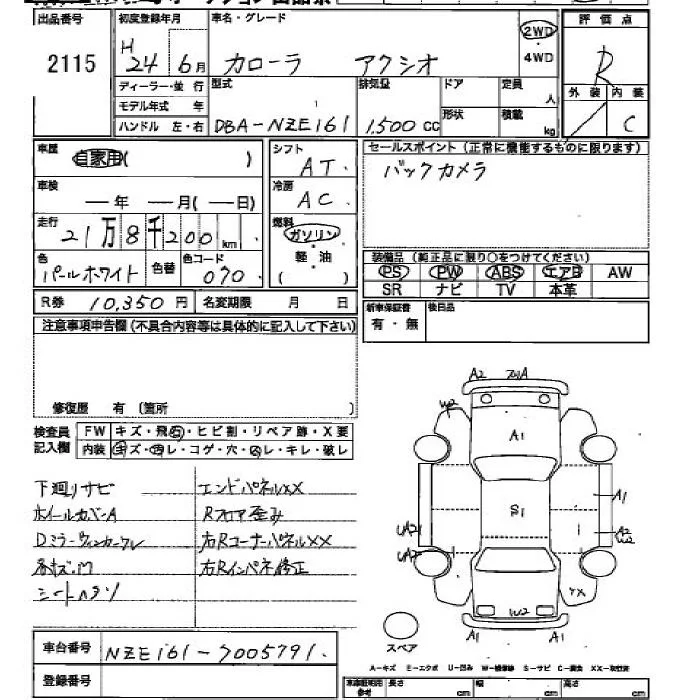 出品番号 初度登録年月 車名・グレード 評価点
2115 H 24 6月 カローラ アクシオ 2WD・4WD R
外装 内装
C
ディーラー・並行 型式 排気量 ドア 定員 人
モデル年式 年 形状 積載 kg
ハンドル 左・右 DBA-NZE161 1,500 CC
車歴 自家用( ) シフト AT.
セールスポイント(正常に機能するものに限ります)
バックカメラ
車検 年 月( 日) 冷房 AC.
走行 21万8千200km 燃料 ガソリン・軽・油
色 パールホワイト 色替 色コード 070
装備品(純正品に限り○をつけてください)
PS PW ABS エアB AW
SR ナビ TV 本革
R券 10,350円 名変期限 月 日
新車保証書 有・無 後日品
注意事項申告欄(不具合内容等は具体的に記入して下さい)
修復歴 有(箇所 )
検査員記入欄 FW キズ・飛石・ヒビ割・リペア跡・X要
内装 キズ・汚レ・コゲ・穴・スレ・キレ・破レ
下廻りサビ エンドパネルXX
ホイールカバーA Rフロア歪み
右RコーナーパネルXX
右Rインパネ修正
A2 A
W2
A1
S1
A1
UA2 A2
W2
UA2
YX
W2
A1 A1
スペア
車台番号 NZE161-7005791.
登録番号
A-キズ E-エクボ U-凹み S-サビ
長さ cm 幅 cm 高さ cm